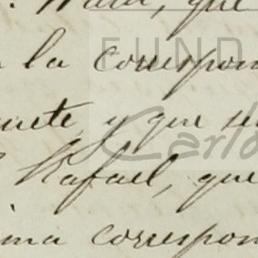 que
la correspon
y que se
Rafael, que
ma correspon
FUND
Carlo